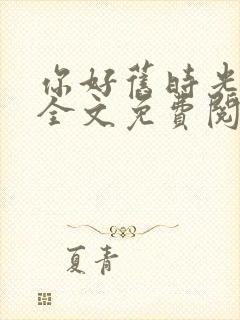 你好舊時光
全文免費閱
夏青